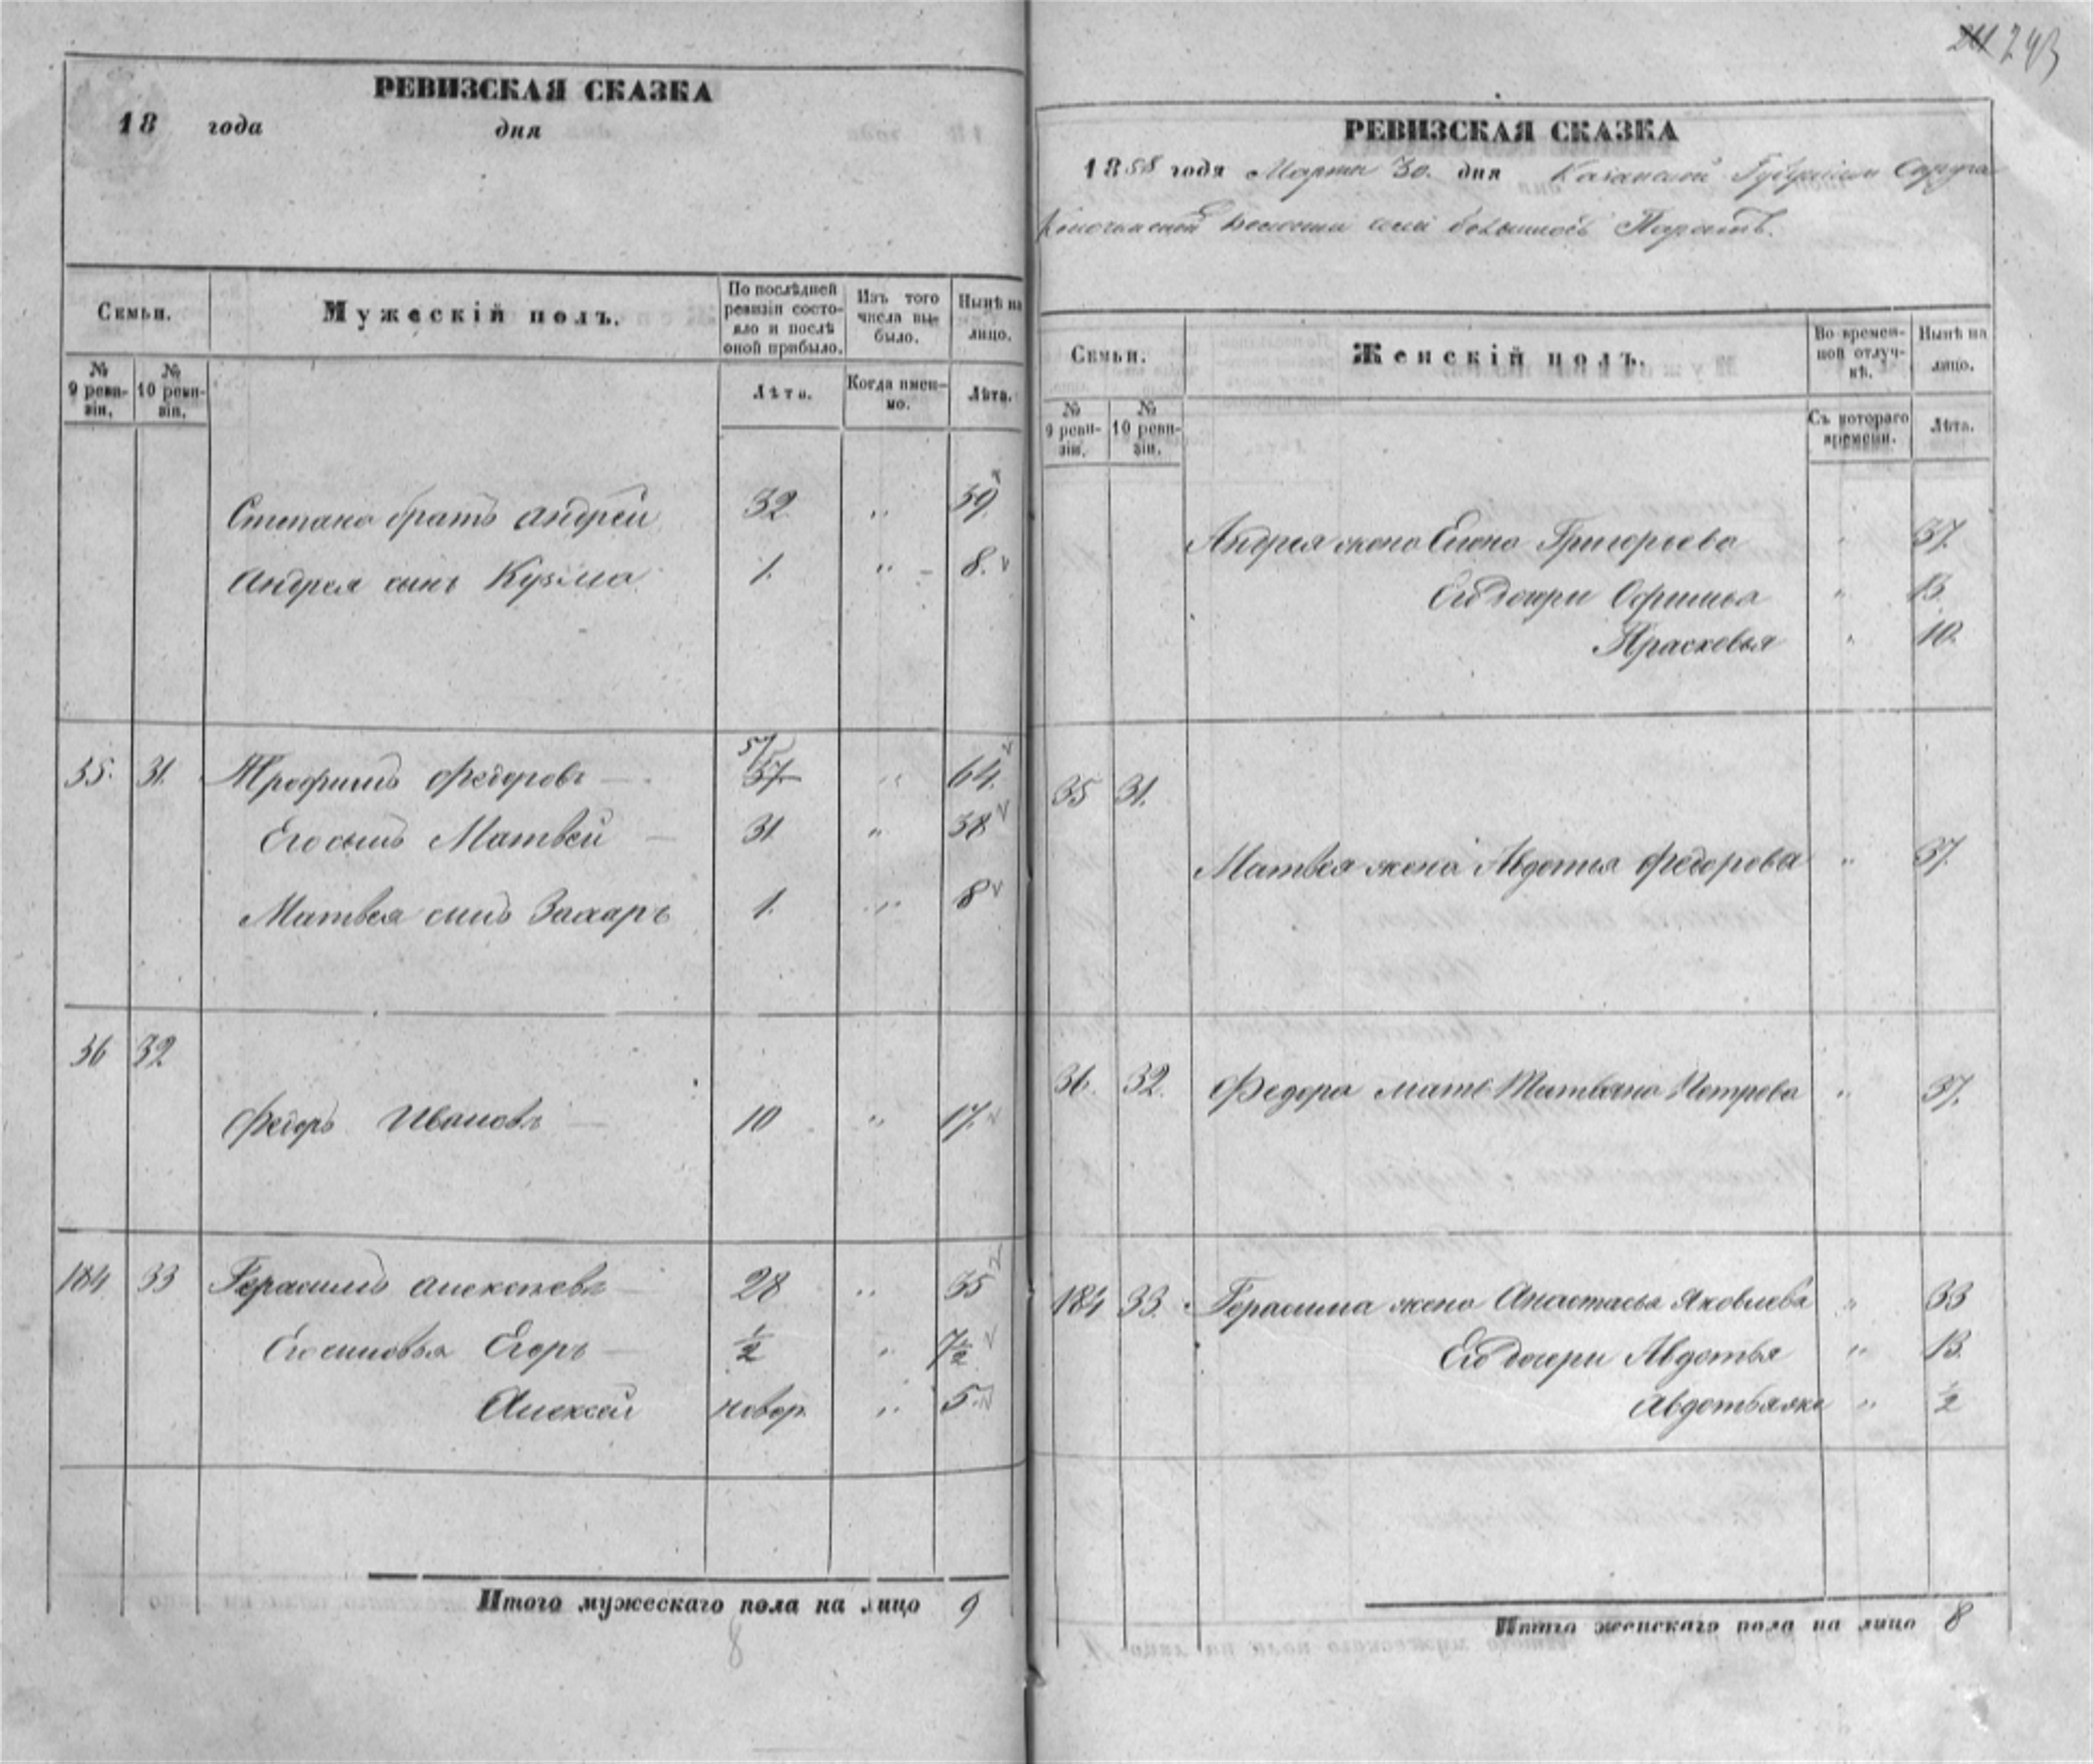 РЕВИЗСКАЯ СКАЗКА
18 года дня
Семьи.
Мужескій полъ.
По послѣдней ревизіи состояло и послѣ оной прибыло.
Изъ того числа выбыло.
Нынѣ на лицо.
№ 9 ревизіи.
№ 10 ревизіи.
Лѣта.
Когда именно.
Лѣта.
Степана братъ Андрей 32 " 39
Андрея сынъ Кузма 1. " 8.
35. 31. Трофимъ Федоровъ 57 57 " 64.
Его сынъ Матвей 31 " 38
Матвея сынъ Захаръ 1. " 8
36 32
Федоръ Ивановъ 10 " 17.
184 33 Герасимъ Алексеевъ 28 " 35
Его сыновья Егоръ ½ " 7½
Алексей новор. " 5.
Итого мужескаго пола на лицо 9
8
243
РЕВИЗСКАЯ СКАЗКА
1858 года Марта 30. дня Казанской Губерніи Округа
волости села Большихъ Паратъ.
Семьи.
Женскій полъ.
Во временной отлучкѣ.
Нынѣ на лицо.
№ 9 ревизіи.
№ 10 ревизіи.
Съ котораго времени.
Лѣта.
Андрея жена Елена Григорьева " 37.
Его дочери Офимья " 13.
Прасковья " 10.
35 31.
Матвея жена Авдотья Федорова " 37.
36. 32. Федора мать Татьяна Петрова " 37.
184 33. Герасима жена Анастасья Яковлева " 33
Его дочери Авдотья " 13.
Авдотья же " ½
Итого женскаго пола на лицо 8